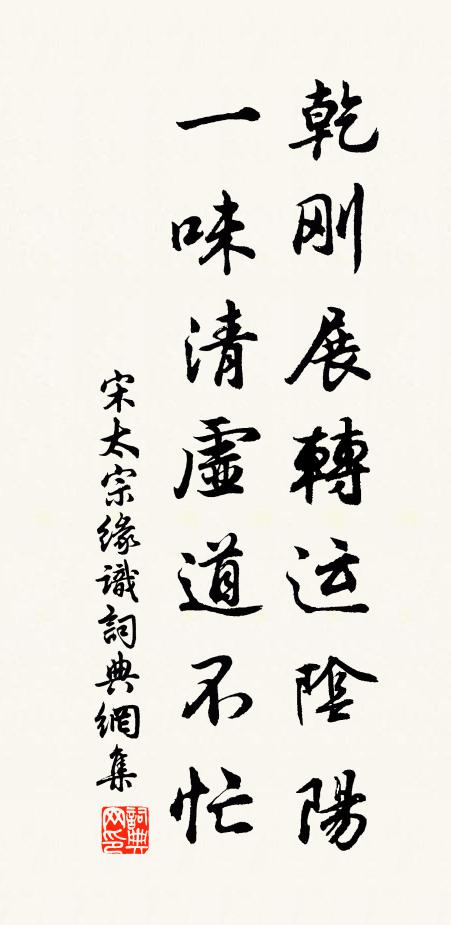 乾刚展轉运陰陽
一味清虛道不忙
宋太宗緣識詞典網集
詞典网印